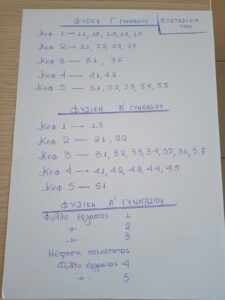 ΦΥΣΙΚΗ Γ' ΓΥΜΝΑΣΙΟΥ
ΕΞΕΤΑΣΤΕΑ
ΥΛΗ
Κεφ 1 → 1.1, 1.2, 1.3, 1.4, 1.5
Κεφ 2 → 2.1, 2.2, 2.3, 2.5
Κεφ 3 → 3.1, 3.6
Κεφ 4 → 4.1, 4.2
Κεφ 5 → 5.1, 5.2, 5.3, 5.4, 5.5
ΦΥΣΙΚΗ Β' ΓΥΜΝΑΣΙΟΥ
Κεφ 1 → 1.3
Κεφ 2 → 2.1, 2.2
Κεφ 3 → 3.1, 3.2, 3.3, 3.4, 3.5, 3.6, 3.7
Κεφ 4 → 4.1, 4.2, 4.3, 4.4, 4.5
Κεφ 5 → 5.1
ΦΥΣΙΚΗ Α' ΓΥΜΝΑΣΙΟΥ
Φύλλο εργασίας 1
-//- 2
-//- 3
Μέτρηση πυκνότητας
Φύλλο εργασίας 4
-//- 5